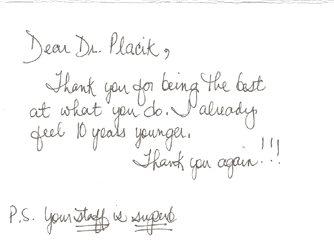 Dear Dr. Placik,
Thank you for being the best
at what you do. I already
feel 10 years younger.
Thank you again!!!
P.S. Your staff is superb